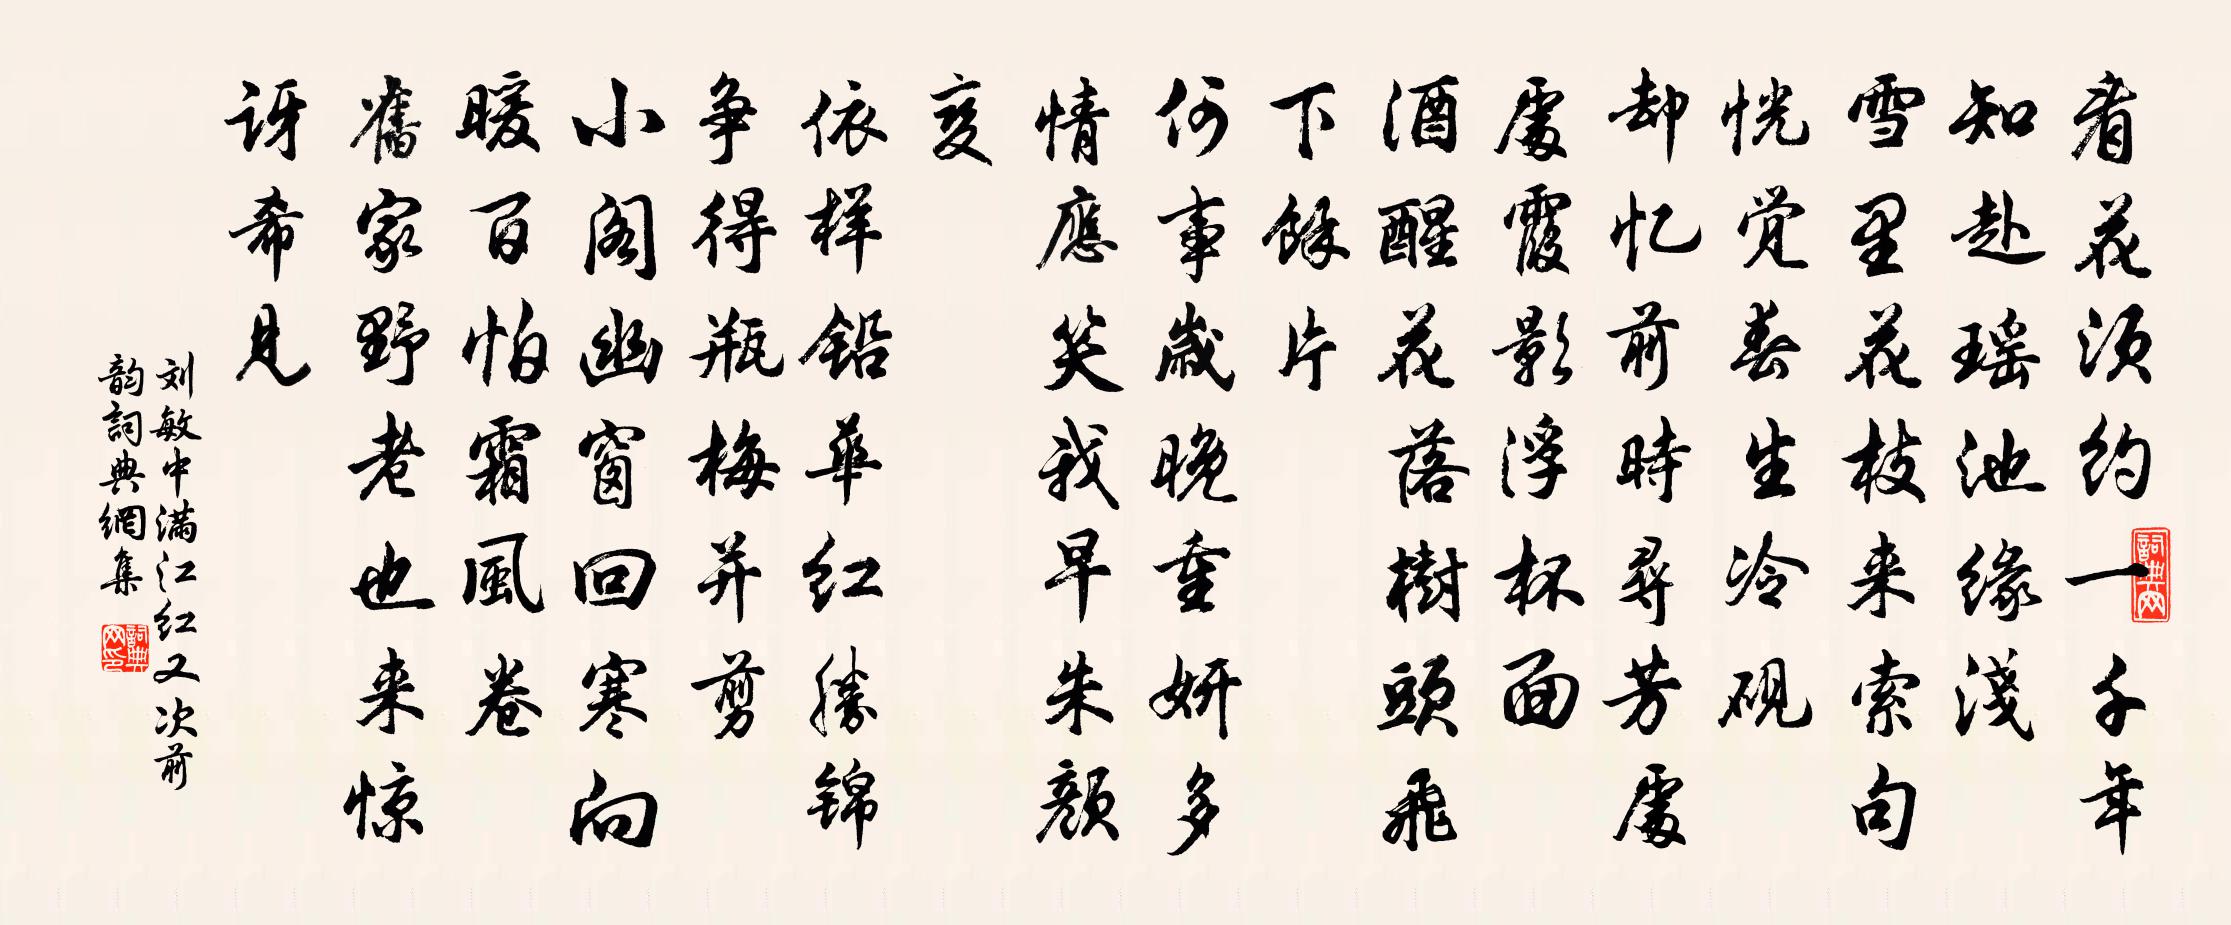 看花須約一千年
知赴瑶池缘淺
雪里花枝来索句
恍觉春生冷砚
却忆前時尋芳處
處霞影浮杯面
酒醒花落樹頭飛
下餘片
何事歲晚重妍多
情應笑我早朱顏
变
依样铅華红勝錦
争得瓶梅并剪
小阁幽窗回寒向
暖百怕霜風卷
舊家野老也来惊
讶希見
刘敏中满江红又次前
韵詞典網集
詞典网
詞典网印